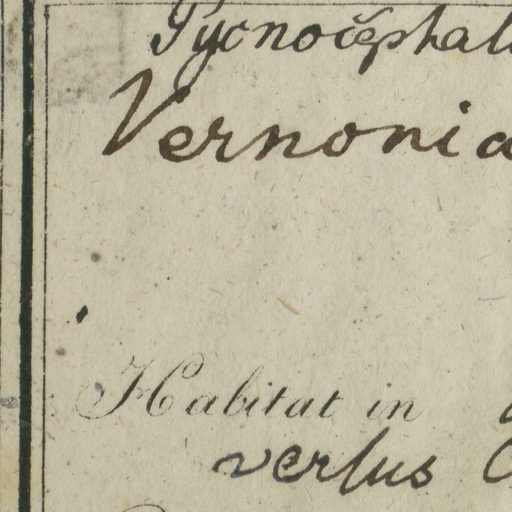 Pycnocephal
Vernonia
Habitat in
versus